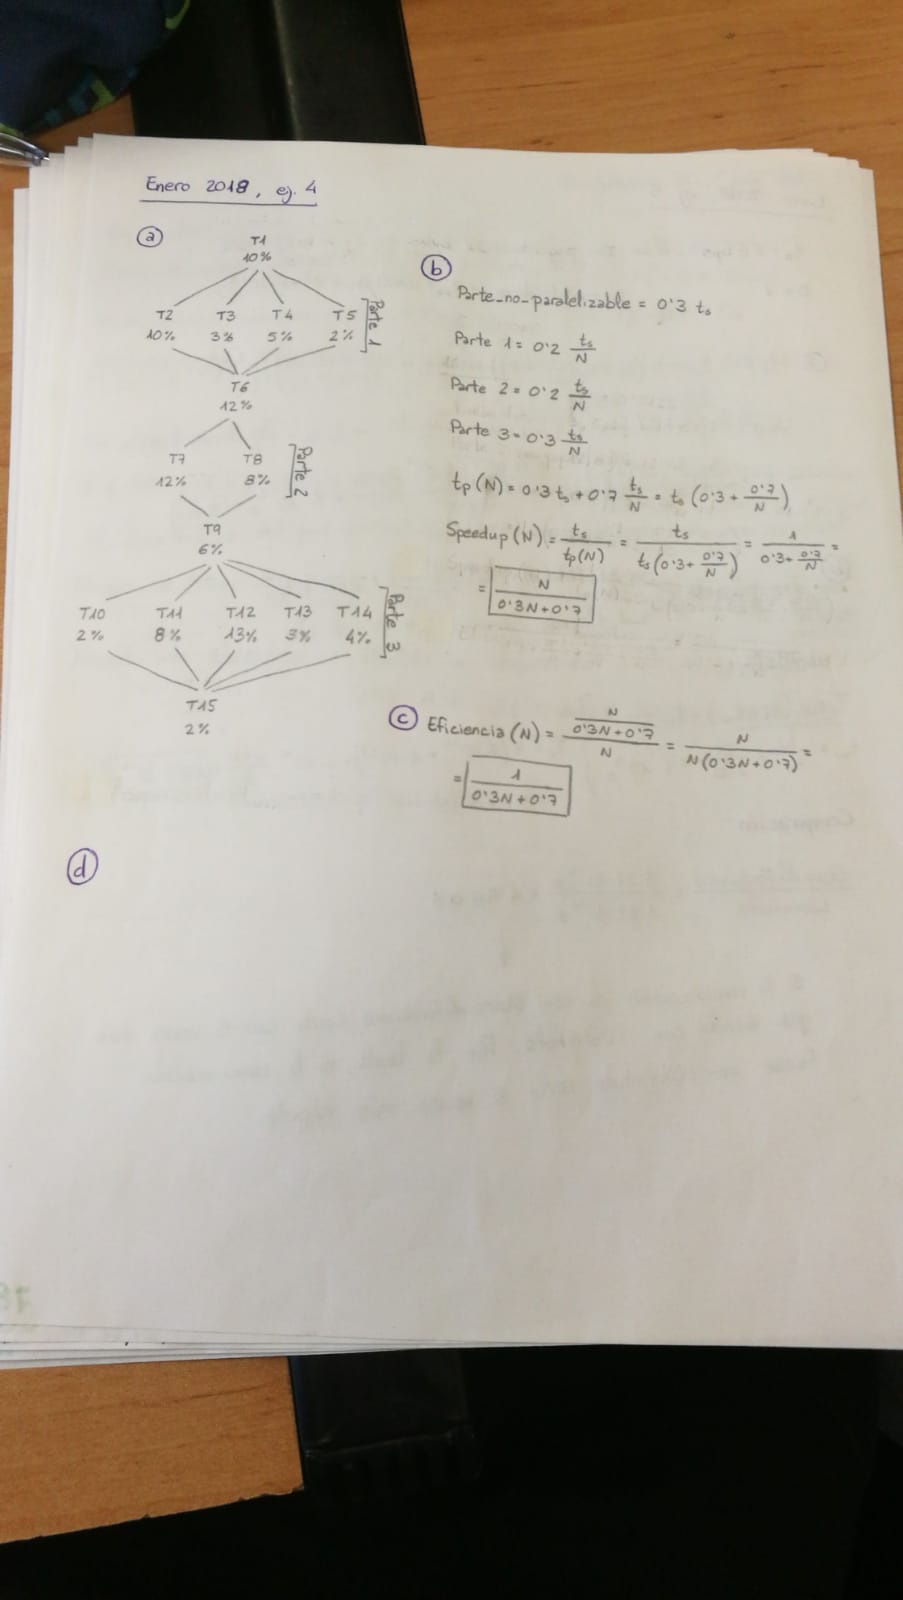 Enero 2018, ej. 4
a
T1
10%
T2 T3 T4 T5
10% 3% 5% 2%
Parte 1
T6
12%
T7 T8
12% 8%
Parte 2
T9
6%
T10 T11 T12 T13 T14
2% 8% 13% 3% 4%
Parte 3
T15
2%
b
Parte_no_paralelizable = 0'3 ts
Parte 1 = 0'2 ts/N
Parte 2 = 0'2 ts/N
Parte 3 = 0'3 ts/N
tp(N) = 0'3 ts + 0'7 ts/N = ts (0'3 + 0'7/N)
Speedup (N) = ts/tp(N) = ts/ts(0'3 + 0'7/N) = 1/0'3 + 0'7/N =
= N/0'3N + 0'7
c Eficiencia (N) = N/0'3N + 0'7/N = N/N(0'3N + 0'7) =
= 1/0'3N + 0'7
d